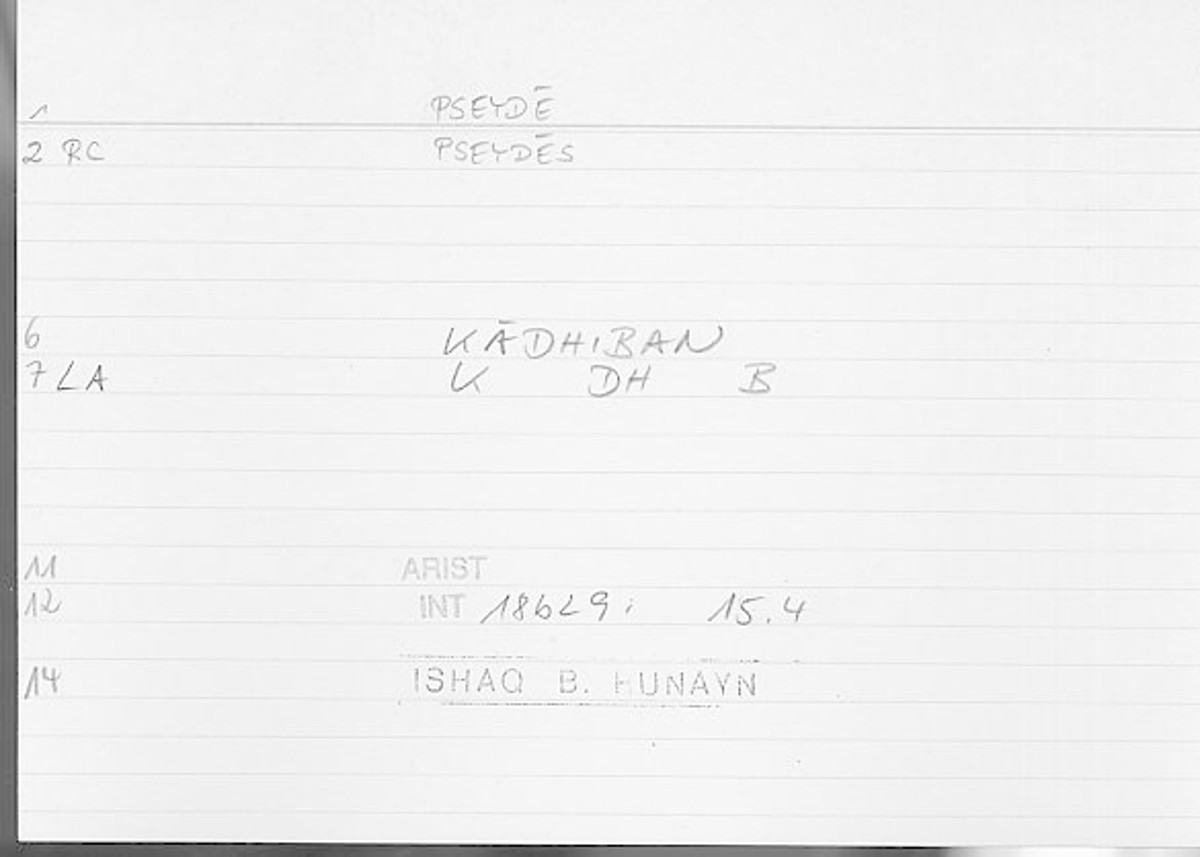 1 PSEYDĒ
2 RC PSEYDĒS
6 KĀDHIBAN
7 LA K DH B
11 ARIST
12 INT 18b29; 15.4
14 ISHAQ B. HUNAYN